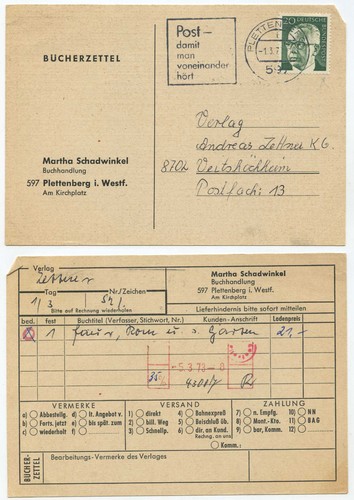 BÜCHERZETTEL
Post –
damit
man
voneinander
hört
PLETTEN
-1.3.7
597
20 DEUTSCHE BUNDESPOST
Verlag
Andreas Zettner K.G.
8702 Veitshöchheim
Postfach: 13
Martha Schadwinkel
Buchhandlung
597 Plettenberg i. Westf.
Am Kirchplatz
Verlag
Zettner
Martha Schadwinkel
Buchhandlung
597 Plettenberg i. Westf.
Am Kirchplatz
Tag
Nr./Zeichen
1/3
Bitte auf Rechnung wiederholen
Lieferhindernis bitte sofort mitteilen
bed. fest Buchtitel (Verfasser, Stichwort, Nr.) Kunden-Anschrift Ladenpreis
1 Rom u. s. Garten 21,-
-5.3.73-8
35%
VERMERKE VERSAND ZAHLUNG
a) Abbestellg. d) lt. Angebot v. 1) direkt 4) Bahnexpreß 7) n. Empfg. 10) NN
b) Forts. jetzt e) bis spät. zum 2) bill. Weg 5) Beischluß üb. 8) Mont.-Kto. 11) BAG
c) wiederholt f) 3) Schnellp. 6) dir. an Kond. 9) bar, Komm. 12)
Rechng. an uns
Komm.:
BÜCHER-
ZETTEL
Bearbeitungs-Vermerke des Verlages